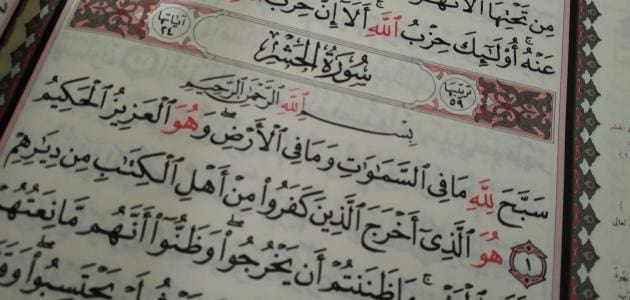 مِن تَحْتِهَا ٱلْأَنْهَٰرُ
عَنْهُ أُو۟لَٰٓئِكَ حِزْبُ ٱللَّهِ أَلَآ إِنَّ حِزْبَ
آياتها ٢٤ سُورَةُ الحَشْرِ ترتيبها ٥٩
بِسْمِ ٱللَّهِ ٱلرَّحْمَٰنِ ٱلرَّحِيمِ
سَبَّحَ لِلَّهِ مَا فِى ٱلسَّمَٰوَٰتِ وَمَا فِى ٱلْأَرْضِ وَهُوَ ٱلْعَزِيزُ ٱلْحَكِيمُ
١ هُوَ ٱلَّذِىٓ أَخْرَجَ ٱلَّذِينَ كَفَرُوا۟ مِنْ أَهْلِ ٱلْكِتَٰبِ مِن دِيَٰرِهِمْ
مَا ظَنَنتُمْ أَن يَخْرُجُوا۟ وَظَنُّوٓا۟ أَنَّهُم مَّانِعَتُهُمْ
يَحْتَسِبُوا۟